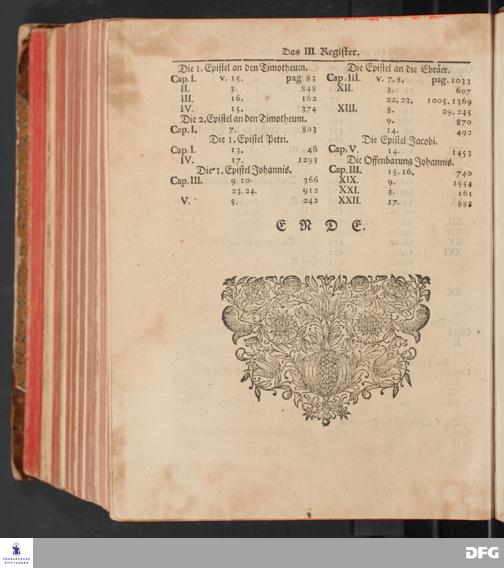 Das III. Register.
Die 1. Epistel an den Timotheum.
Cap. I. v. 15. pag. 83
II. 3. 848
III. 16. 162
IV. 15. 374
Die 2. Epistel an den Timotheum.
Cap. I. 7. 803
Die 1. Epistel Petri.
Cap. I. 13. 46
IV. 17. 1293
Die 1. Epistel Johannis.
Cap. III. 9. 10. 366
23. 24. 912
V. 5. 242
Die Epistel an die Ebräer.
Cap. III. v. 7. 8. pag. 1033
XII. 3. 607
22. 23. 1005. 1369
XIII. 8. 29. 245
9. 870
14. 492
Die Epistel Jacobi.
Cap. V. 14. 1453
Die Offenbarung Johannis.
Cap. III. 15. 16. 740
XIX. 9. 1554
XXI. 3. 161
XXII. 17. 888
E N D E.
FRANCKESCHE
STIFTUNGEN
DFG